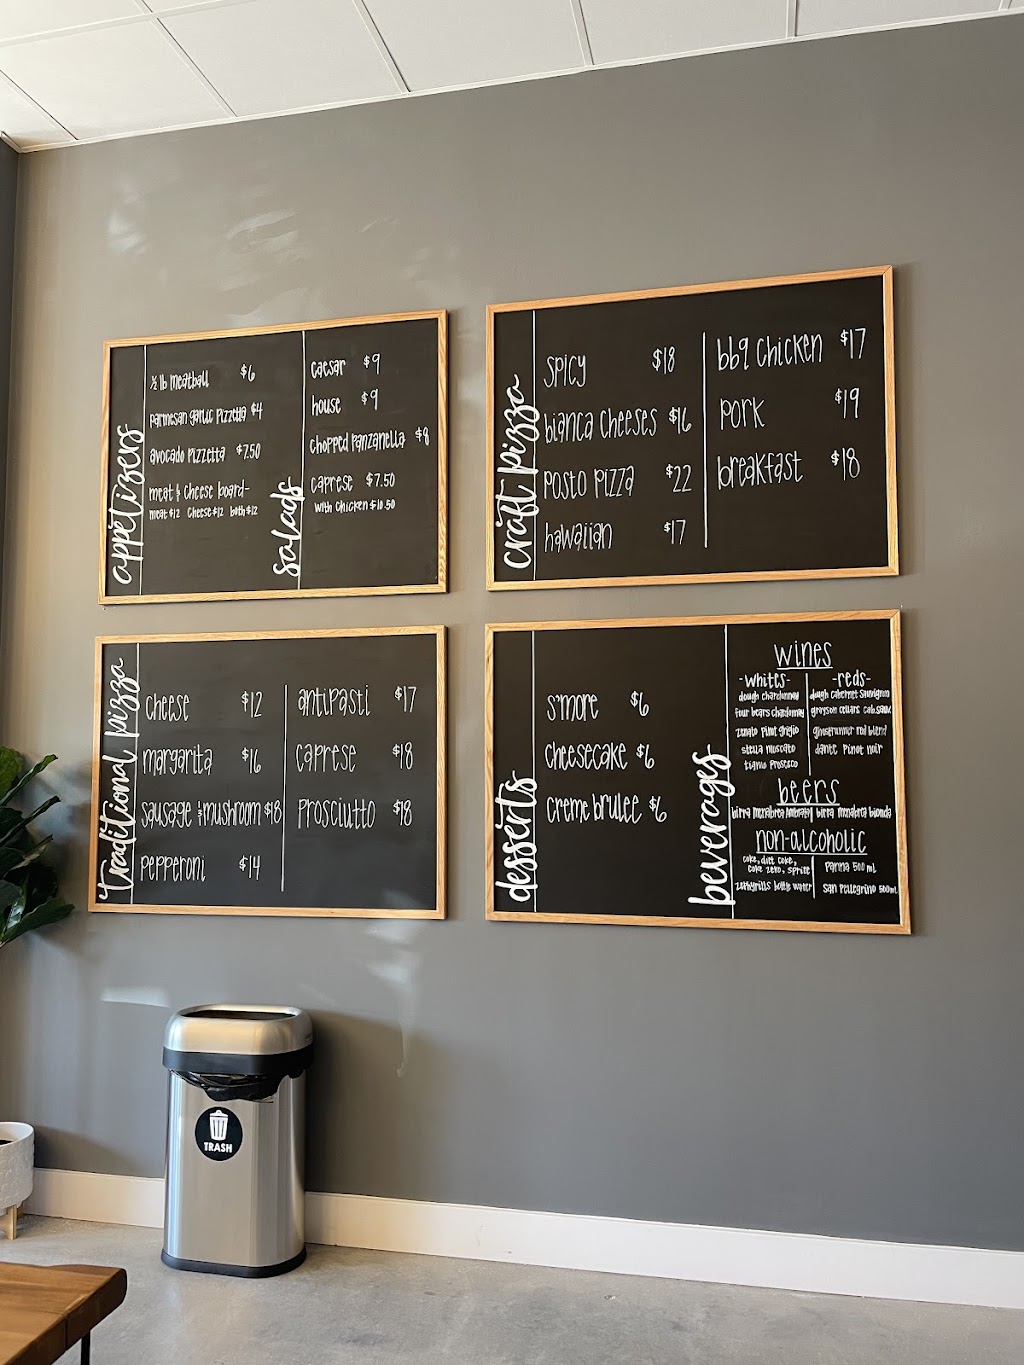 appetizers
½ lb meatball $6
parmesan garlic pizzetta $4
avocado pizzetta $7.50
meat & cheese board-
meat $12 cheese $12 both $12
salads
caesar $9
house $9
chopped panzanella $8
caprese $7.50
with chicken $10.50
craft pizza
spicy $18
bianca cheeses $16
posto pizza $22
hawaiian $17
bbq chicken $17
pork $19
breakfast $18
traditional pizza
cheese $12
margarita $16
sausage & mushroom $18
pepperoni $14
antipasti $17
caprese $18
prosciutto $18
desserts
s'more $6
cheesecake $6
creme brulee $6
beverages
wines
-whites-
dough chardonnay
four bears chardonnay
zenato pinot grigio
stella moscato
tiamo prosecco
-reds-
dough cabernet sauvignon
grayson cellars cab. sauv.
gunsrunner red blend
dante pinot noir
beers
birra menabrea ambrata
birra menabrea bionda
non-alcoholic
coke, diet coke,
coke zero, sprite
zephyrills bottle water
panna 500 mL
san pellegrino 500mL
TRASH